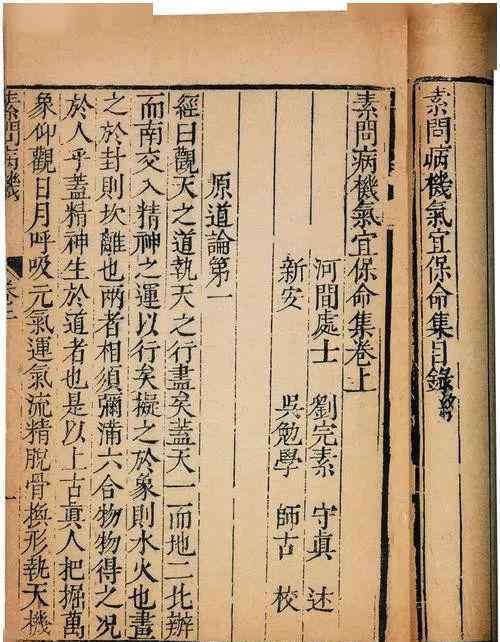 素問病機氣宜保命集目錄終
素問病機氣宜保命集卷上
河間處士　劉完素　守真　述
新安　吳勉學　師古　校
原道論第一
經曰觀天之道執天之行盡矣蓋天一而地二北辨
而南交入精神之運以行矣擬之於象則水火也畫
之於卦則坎離也兩者相須彌滿六合物物得之况
於人乎蓋精神生於道者也是以上古眞人把握萬
象仰觀日月呼吸元氣運氣流精脫骨換形執天機
素問病機
卷上
一